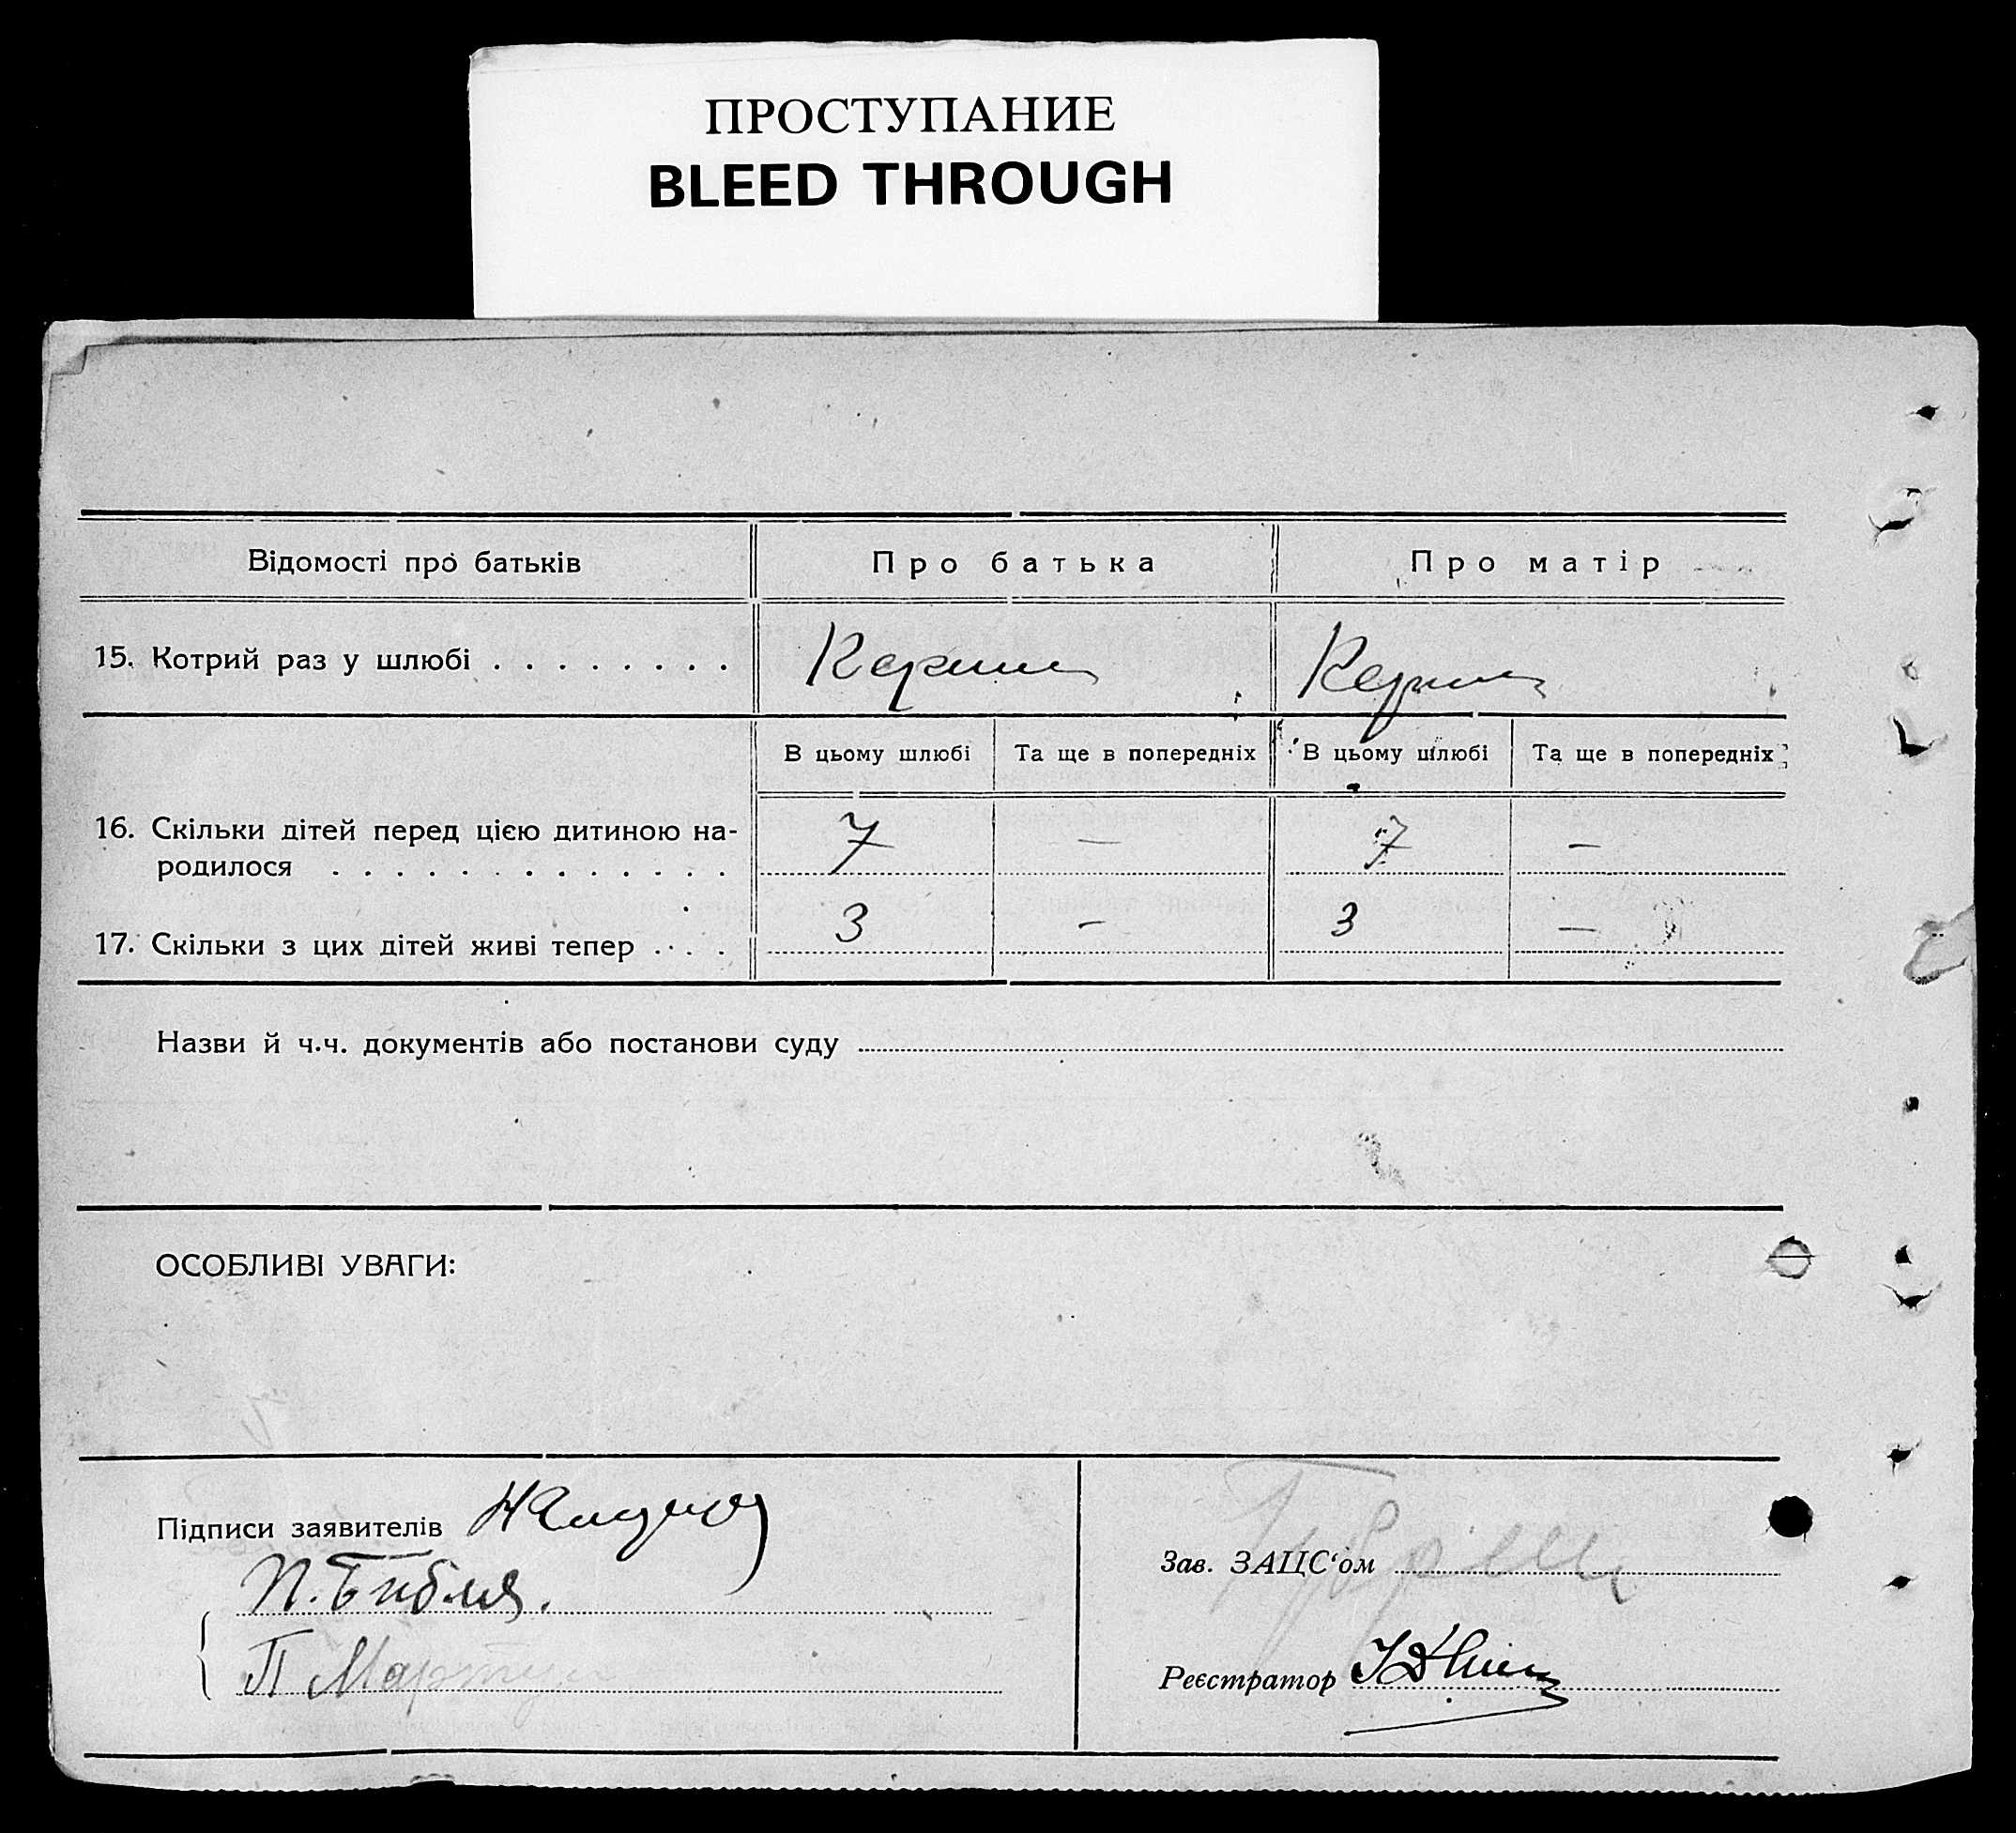 ПРОСТУПАНИЕ
BLEED THROUGH
Відомості про батьків Про батька Про матір
15. Котрий раз у шлюбі . . . . . . . .
В цьому шлюбі Та ще в попередніх В цьому шлюбі Та ще в попередніх
16. Скільки дітей перед цією дитиною на-
родилося . . . . . . . . . . . . . 7 — 7 —
17. Скільки з цих дітей живі тепер . . . 3 — 3 —
Назви й ч.ч. документів або постанови суду
ОСОБЛИВІ УВАГИ:
Підписи заявителів
П. Библя.
П
Зав. ЗАЦС‘ом
Реєстратор